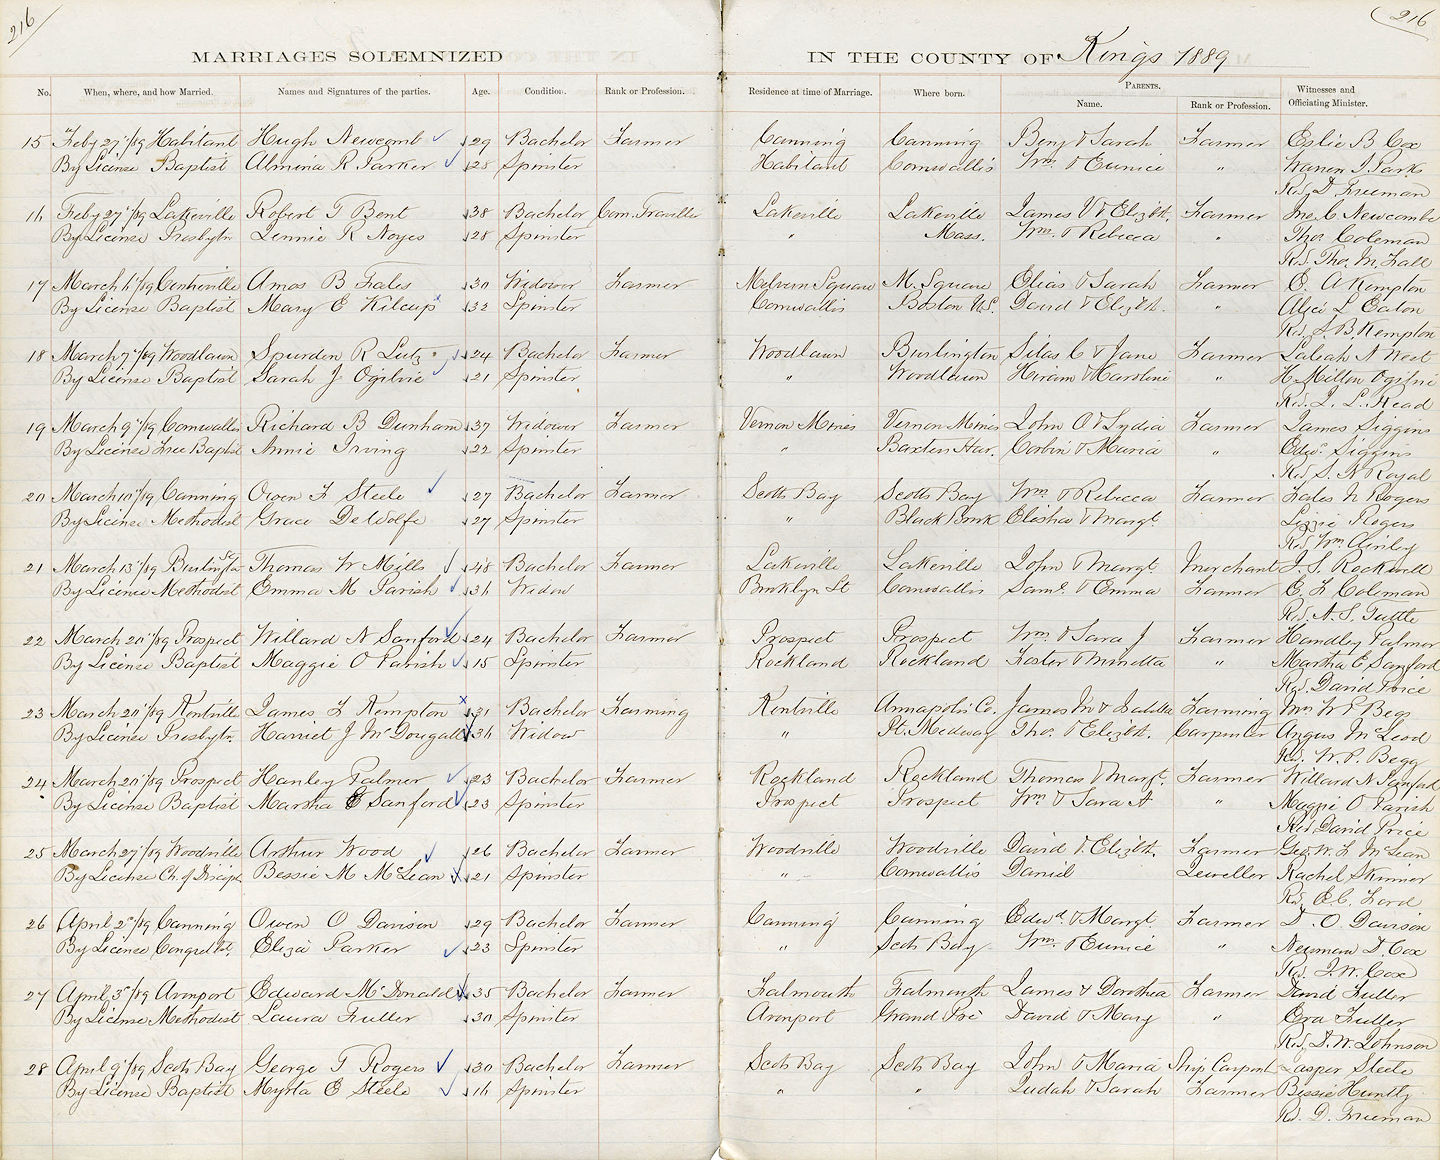 216 216
MARRIAGES SOLEMNIZED IN THE COUNTY OF Kings 1889
No. When, where, and how Married. Names and Signatures of the parties. Age. Condition. Rank or Profession. Residence at time of Marriage. Where born. PARENTS. Name. Rank or Profession. Witnesses and Officiating Minister.
15 Feby 27"/89 Habitant Hugh Newcomb 29 Bachelor Farmer Canning Canning Benj & Sarah Farmer Eslie B Cox
By License Baptist Almina R Parker 25 Spinster Habitant Cornwallis Wm & Eunice " Warren I. Parks
Rd. D Freeman
16 Feby 27"/89 Lakeville Robert T Bent 38 Bachelor Com. Traveller Lakeville Lakeville James V & Elizbt. Farmer Jno. C Newcombe
By License Presbytn Jennie R Noyes 28 Spinster " Mass. Wm. & Rebecca " Thos. Coleman
Rd Tho. M. Fall
17 March 6"/89 Centreville Amos B Fales 30 Widower Farmer Melvern Square M. Square Elias & Sarah Farmer E. A Kempton
By License Baptist Mary E Kilcup 32 Spinster Cornwallis Boston U.S. David & Elizbt. " Alice L Eaton
Rd. S. B. Kempton
18 March 7"/89 Woodlawn Spurden R Lutz 24 Bachelor Farmer Woodlawn Burlington Silas C & Jane Farmer West
By License Baptist Sarah J Ogilvie 21 Spinster " Woodlawn Hiram & Caroline " H. Milton Ogilvie
Rd. J. L. Read
19 March 9"/89 Cornwallis Richard B Dunham 37 Widower Farmer Vernon Mines Vernon Mines John O & Lydia Farmer James Siggins
By License Free Baptist Annie Irving 22 Spinster " Baxters Har. Corbin & Maria " Edwd. Siggins
Rd S. N Royal
20 March 10"/89 Canning Owen F Steele 27 Bachelor Farmer Scotts Bay Scotts Bay Wm & Rebecca Farmer Fales N Rogers
By License Methodist Grace DeWolfe 27 Spinster " Black Brook Elisha & Margt " Lizzie Rogers
Rd Wm. Ainley
21 March 13"/89 Burlington Thomas W Mills 48 Bachelor Farmer Lakeville Lakeville John & Margt. Merchant J. S. Rockwell
By License Methodist Emma M Parish 36 Widow Brooklyn St Cornwallis Saml. & Emma Farmer E. F Coleman
Rd. A. S. Tuttle
22 March 20"/89 Prospect Willard N Sanford 24 Bachelor Farmer Prospect Prospect Wm & Sara J Farmer Handley Palmer
By License Baptist Maggie O Parish 15 Spinster Rockland Rockland Foster & Minetta " Martha E Sanford
Rd. David Price
23 March 20"/89 Kentville James F Kempton 31 Bachelor Farming Kentville Annapolis Co. James M & Isabella Farming Mrs W. P Begg
By License Presbytn. Harriet J McDougall 36 Widow " Pt. Medway Tho. & Elizbt. Carpenter Angus McLeod
Rd. W. P. Begg
24 March 20"/89 Prospect Hanley Palmer 23 Bachelor Farmer Rockland Rockland Thomas & Margt. Farmer Willard N Sanford
By License Baptist Martha E Sanford 23 Spinster Prospect Prospect Wm & Sara A " Maggie O Parish
Rd David Price
25 March 27"/89 Woodville Arthur Wood 26 Bachelor Farmer Woodville Woodville David & Elizbt. Farmer Geo. W. F McLean
By License Ch. of Discipls Bessie M McLean 21 Spinster " Cornwallis Daniel Jeweller Rachel Skinner
Rd. E. C. Ford
26 April 2"/89 Canning Owen O Davison 29 Bachelor Farmer Canning Canning Edwd. & Margt. Farmer D. O Davison
By License Congretnl. Eliza Parker 23 Spinster " Scots Bay Wm. & Eunice " Newman D. Cox
Rd. J. W. Cox
27 April 3"/89 Avonport Edward McDonald 35 Bachelor Farmer Falmouth Falmouth James & Dorothea Farmer David Fuller
By License Methodist Laura Fuller 30 Spinster Avonport Grand Pré David & Mary " Ezra Fuller
Rd. D. W. Johnson
28 April 9"/89 Scots Bay George T Rogers 30 Bachelor Farmer Scots Bay Scots Bay John & Maria Ship Carpent Jasper Steele
By License Baptist Myrta E Steele 16 Spinster " " Judah & Sarah Farmer Bessie Huntly
Rd. D. Freeman